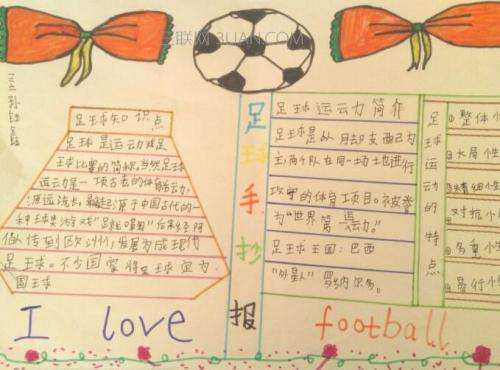 三联网 3LIAN.COM
足球知识点
足球是运动或足
球比赛的简称,当然足球
运动是一项古老的体育活动,
源远流长,最早起源于中国古代的一
种球类游戏"蹴鞠",后来经阿
做传到欧洲,发展为成现代
足球。不少国家将足球定为
国球
足球手抄报
足球运动力简介
足球是以脚支配为
主,两个队在同一场地进行
攻守的体育项目。不被誉
为"世界第一运动"。
足球王国:巴西
"外星人"罗纳尔多。
足球运动的特点
整体
对抗
多变
易行
I love football